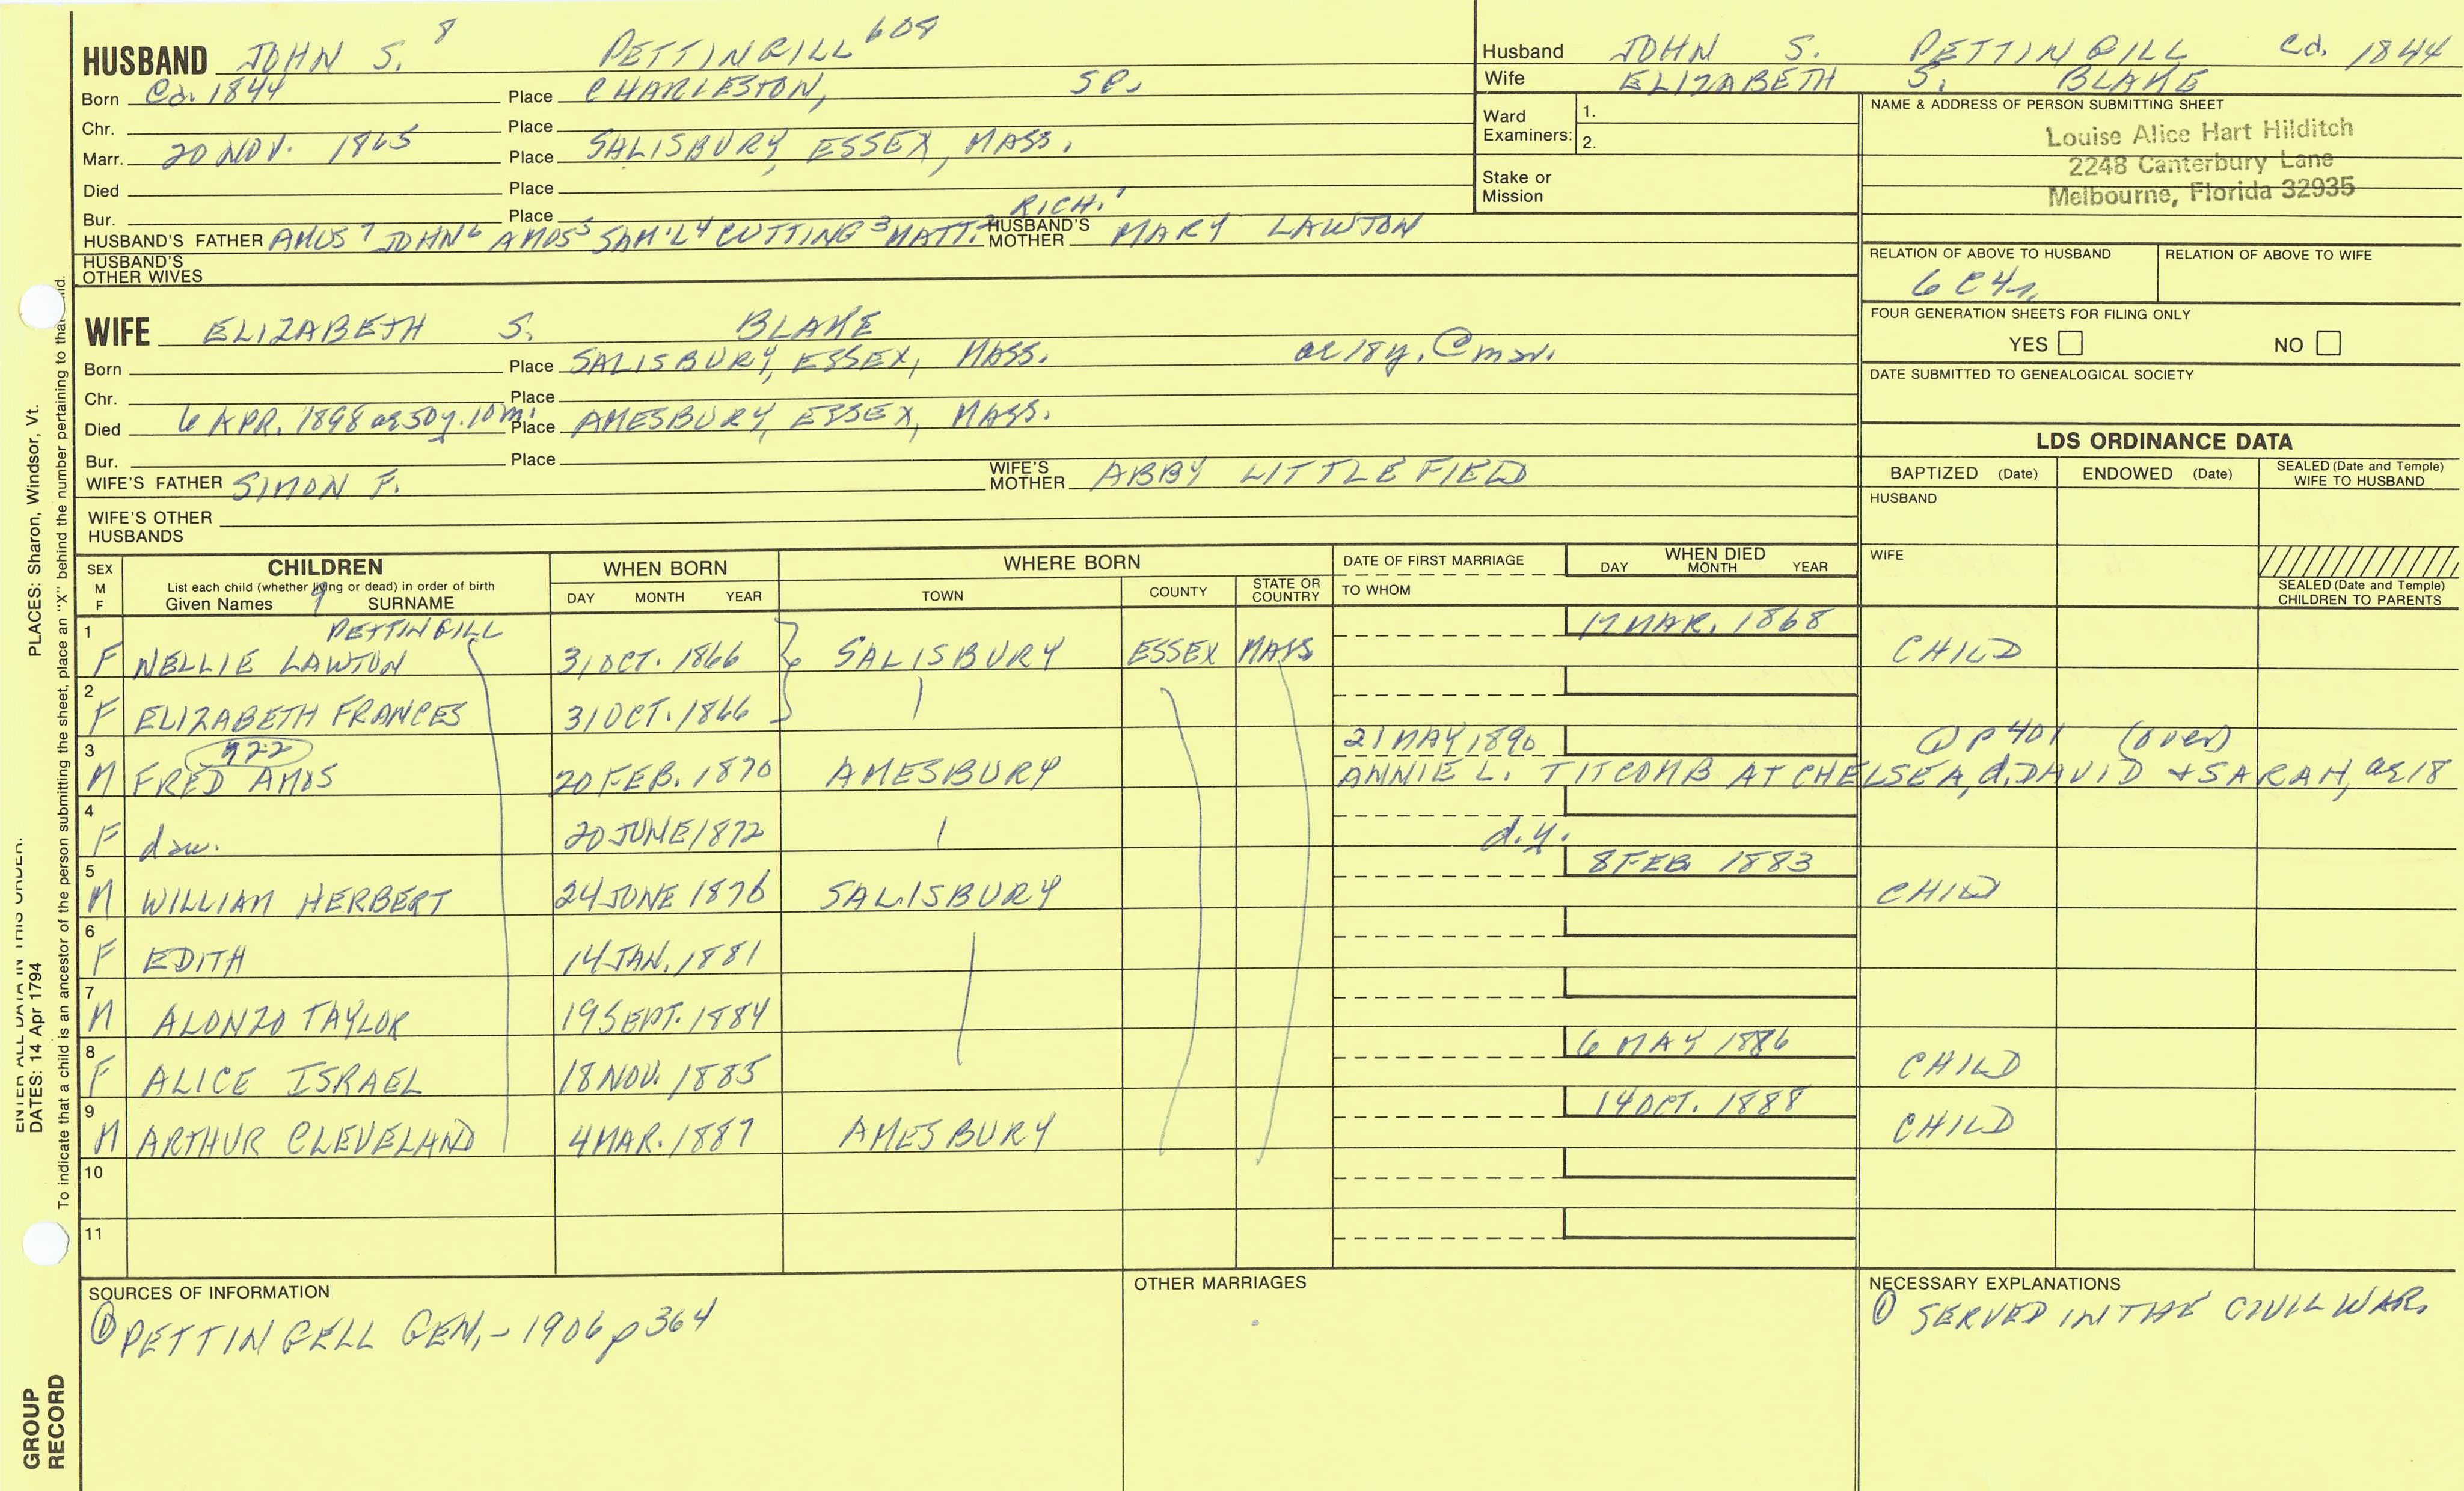 HUSBAND JOHN S. 8 PETTINGILL 608
Born Ca. 1844 Place CHARLESTON, SC.
Chr. Place
Marr. 20 NOV. 1865 Place SALISBURY, ESSEX, MASS.
Died Place
Bur. Place
HUSBAND'S FATHER AMOS 7 JOHN 6 AMOS 5 SAM'L 4 CUTTING 3 MATT. 2 RICH. 1 HUSBAND'S MOTHER MARY LAWTON
HUSBAND'S OTHER WIVES
Husband JOHN S. PETTINGILL Ca. 1844
Wife ELIZABETH S. BLAKE
Ward Examiners: 1.
2.
Stake or Mission
NAME & ADDRESS OF PERSON SUBMITTING SHEET
Louise Alice Hart Hilditch
2248 Canterbury Lane
Melbourne, Florida 32935
RELATION OF ABOVE TO HUSBAND RELATION OF ABOVE TO WIFE
6C4r.
FOUR GENERATION SHEETS FOR FILING ONLY
YES NO
DATE SUBMITTED TO GENEALOGICAL SOCIETY
WIFE ELIZABETH S. BLAKE
Born Place SALISBURY, ESSEX, MASS. ae 18y. @ mar.
Chr. Place
Died 6 APR. 1898 ae 50y. 10m. Place AMESBURY, ESSEX, MASS.
Bur. Place
WIFE'S FATHER SIMON F. WIFE'S MOTHER ABBY LITTLEFIELD
WIFE'S OTHER HUSBANDS
LDS ORDINANCE DATA
BAPTIZED (Date) ENDOWED (Date) SEALED (Date and Temple) WIFE TO HUSBAND
HUSBAND
WIFE
SEALED (Date and Temple) CHILDREN TO PARENTS
SEX M F
CHILDREN
List each child (whether living or dead) in order of birth
Given Names 9 SURNAME
WHEN BORN DAY MONTH YEAR
WHERE BORN TOWN COUNTY STATE OR COUNTRY
DATE OF FIRST MARRIAGE
TO WHOM
WHEN DIED DAY MONTH YEAR
1 PETTINGILL 17 MAR. 1868
F NELLIE LAWTON 31 OCT. 1866 SALISBURY ESSEX MASS CHILD
2
F ELIZABETH FRANCES 31 OCT. 1866
3 922 21 MAY 1890 ① P 401 (over)
M FRED AMOS 20 FEB. 1870 AMESBURY ANNIE L. TITCOMB AT CHELSEA, d. DAVID + SARAH, ae 18
4
F dau. 20 JUNE 1872 d.y.
5 8 FEB 1883
M WILLIAM HERBERT 24 JUNE 1876 SALISBURY CHILD
6
F EDITH 14 JAN. 1881
7
M ALONZO TAYLOR 19 SEPT. 1884
8 6 MAY 1886
F ALICE ISRAEL 18 NOV. 1885 CHILD
9 14 OCT. 1888
M ARTHUR CLEVELAND 4 MAR. 1887 AMESBURY CHILD
10
11
SOURCES OF INFORMATION
① PETTINGELL GEN. - 1906 p 364
OTHER MARRIAGES
NECESSARY EXPLANATIONS
① SERVED IN THE CIVIL WAR.
ENTER ALL DATA IN THIS ORDER.
DATES: 14 Apr 1794 PLACES: Sharon, Windsor, Vt.
To indicate that a child is an ancestor of the person submitting the sheet, place an "X" behind the number pertaining to that
GROUP RECORD